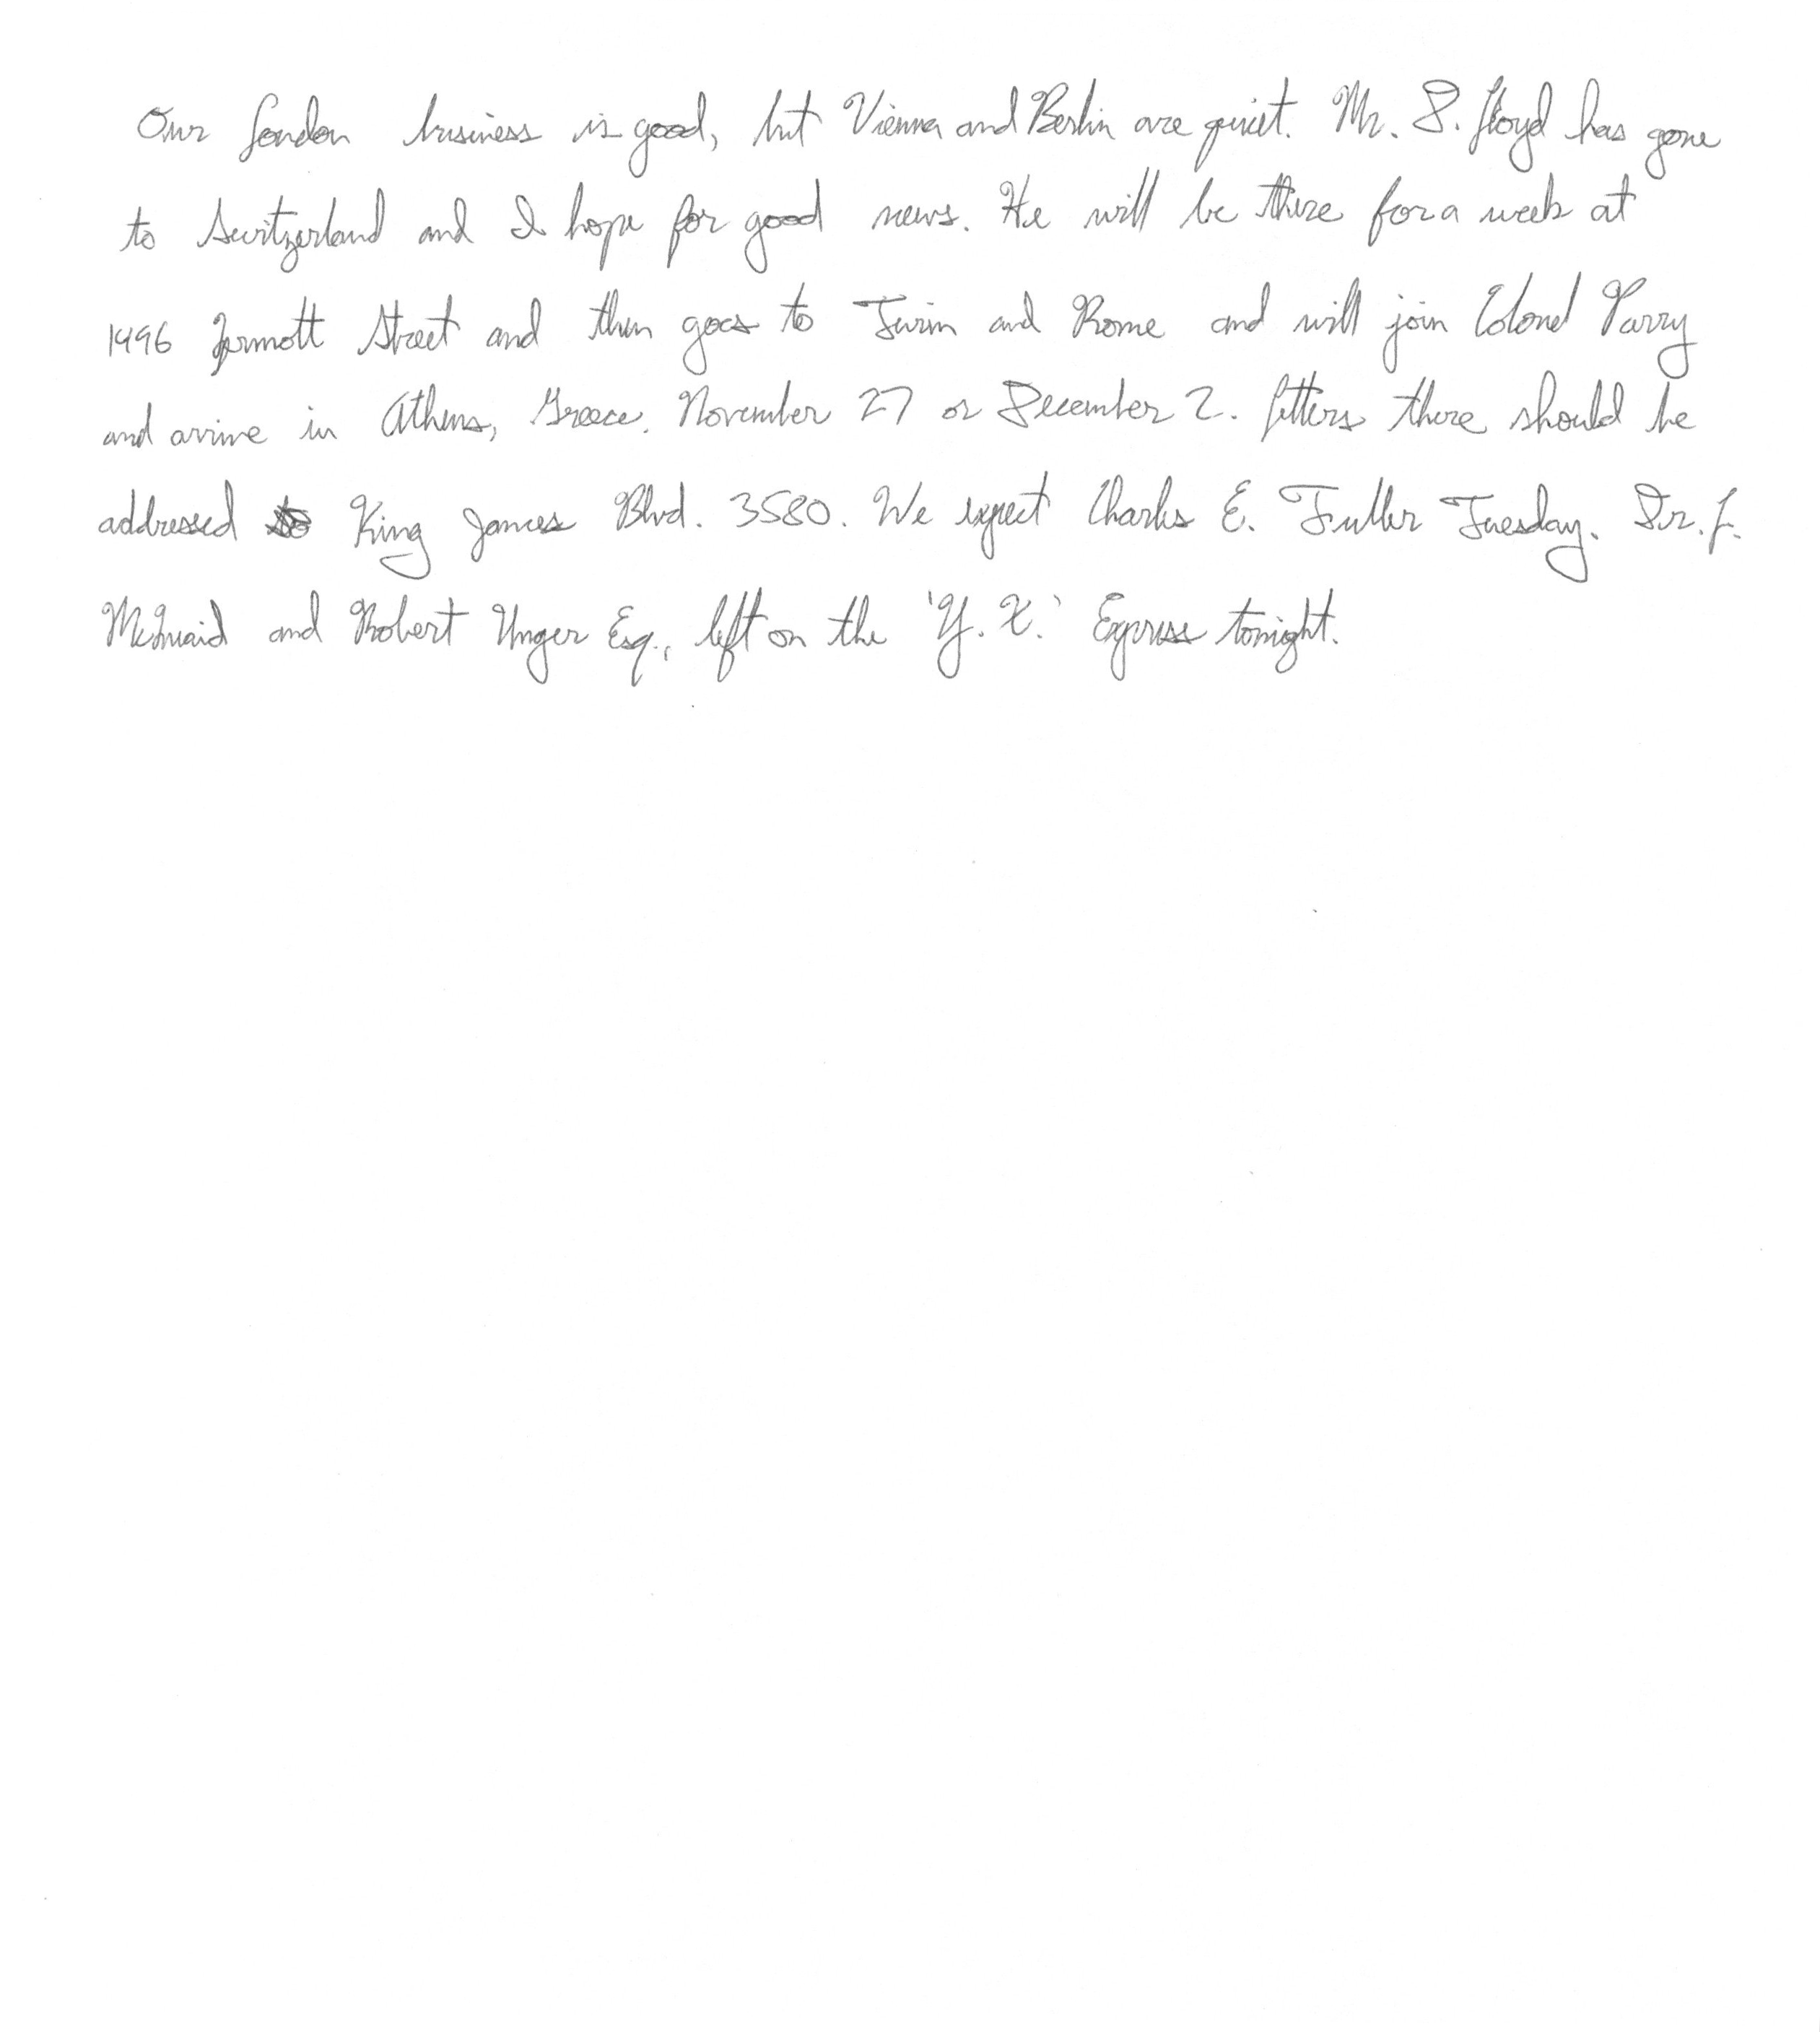 Our London business is good, but Vienna and Berlin are quiet. Mr. D. Lloyd has gone
to Switzerland and I hope for good news. He will be there for a week at
1496 Zermott Street and then goes to Turin and Rome and will join Colonel Parry
and arrive in Athens, Greece, November 27 or December 2. Letters there should be
addressed to King James Blvd. 3580. We expect Charles E. Fuller Tuesday. Dr. L.
McQuaid and Robert Unger Esq., left on the 'Y. X.' Express tonight.